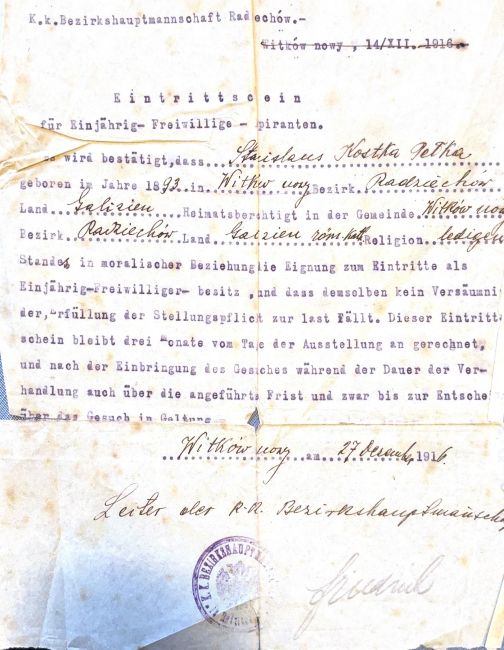 K.k.Bezirkshauptmannschaft Radechów.-
Witków nowy , 14/XII. 1916.
Eintrittschein
für Einjährig- Freiwillige - piranten.
wird bestätigt,dass Stanislaus Kostka Petka
geboren im Jahre 1893 in Witków nowy Bezirk Radziechów
Land Galizien Heimatsberchtigt in der Gemeinde Witków now
Bezirk Radziechów Land Galizien röm. kath Religion ledigen
Standes in moralischer Beziehung die Eignung zum Eintritte als
Einjährig-Freiwilliger- besitz ,und dass demselben kein Versäumni
der, rfüllung der Stellungspflict zur last Fällt. Dieser Eintritt
schein bleibt drei Monate vom Tage der Ausstellung an gerechnet,
und nach der Einbringung des Gesuches während der Dauer der Ver-
handlung auch über die angeführte Frist und zwar bis zur Entsche
über das Gesuch in Geltung
Witków nowy am 27 Dezemb. 1916.
Leiter der k.k. Bezirkshauptmannschaf
K.K. BEZIRKSHAUPTM